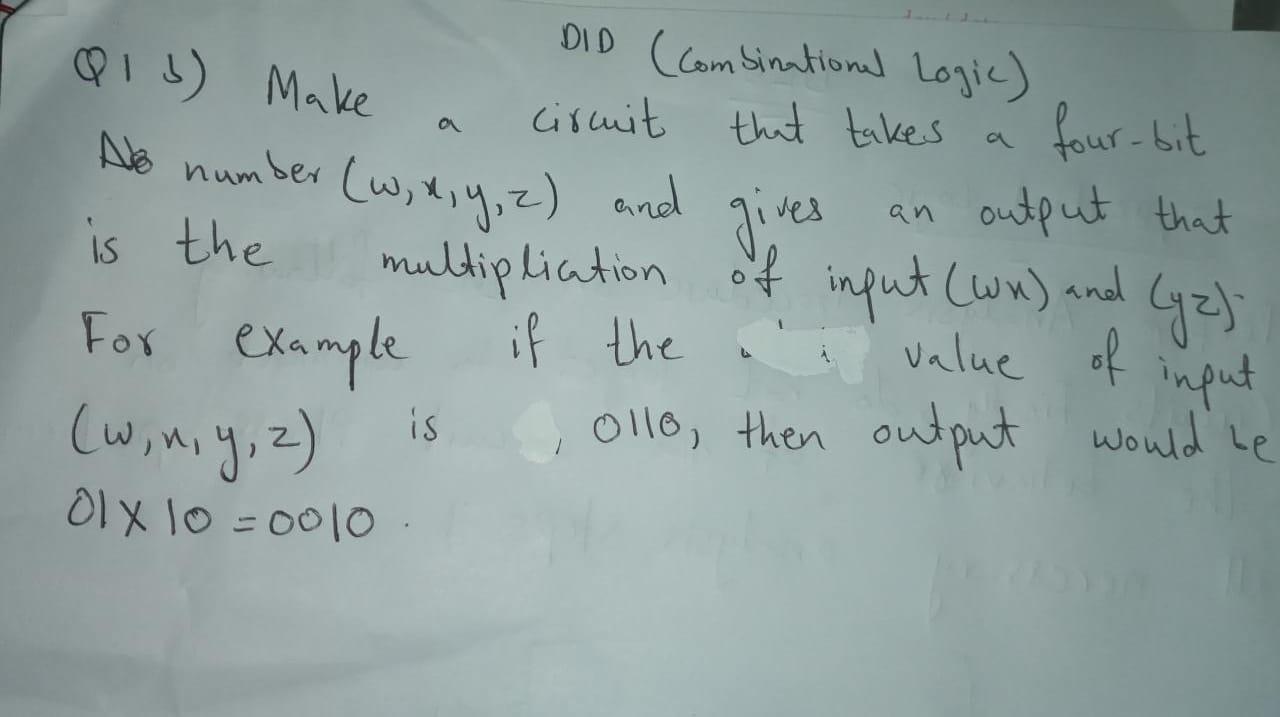 DLD (Combinational Logic)
Q1 b) Make a circuit that takes a four-bit
number (w,x,y,z) and gives an output that
is the multiplication of input (wx) and (yz).
For example if the value of input
(w,x,y,z) is , 0110, then output would be
01 X 10 = 0010.